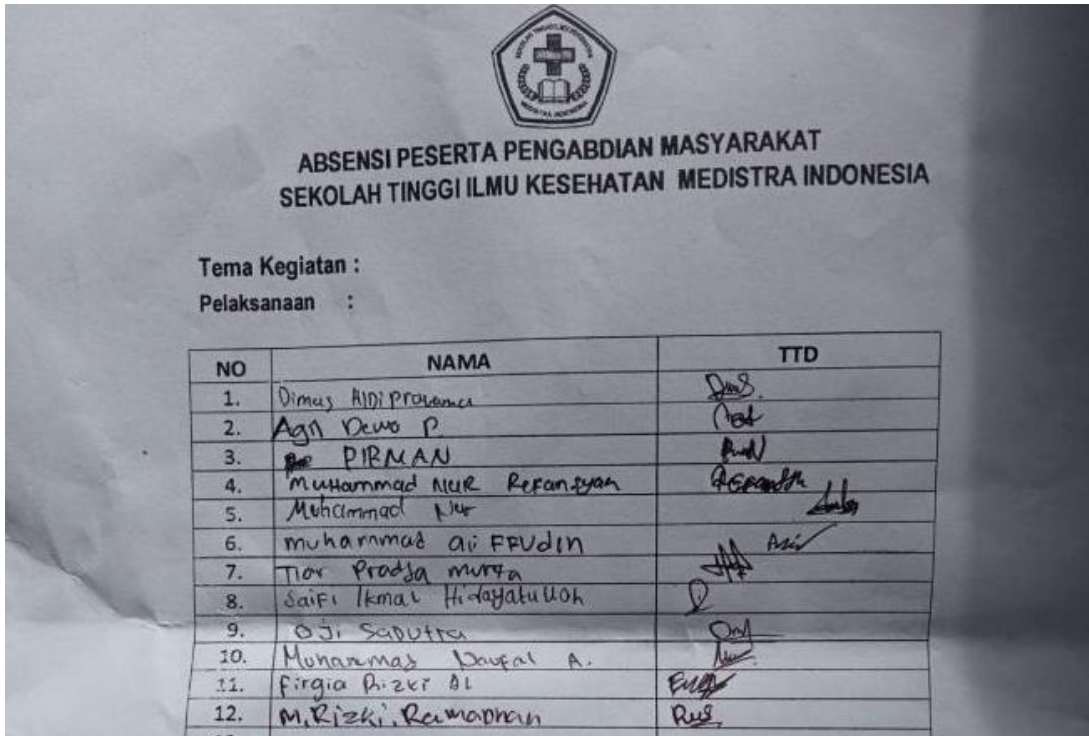 ABSENSI PESERTA PENGABDIAN MASYARAKAT
SEKOLAH TINGGI ILMU KESEHATAN MEDISTRA INDONESIA
Tema Kegiatan :
Pelaksanaan :
NO NAMA TTD
1. Dimas
2. Agn Dewo P.
3. PIRMAN
4. Muhammad NUR Refansyah
5. Muhammad Nur
6. muhammad
7. Tior Pradja
8. Saifi Ikmal Hidayatulloh
9. Oji Saputra
10. Muhammad Naufal A.
11. Firgia Rizki AL
12. M. Rizki. Ramadhan